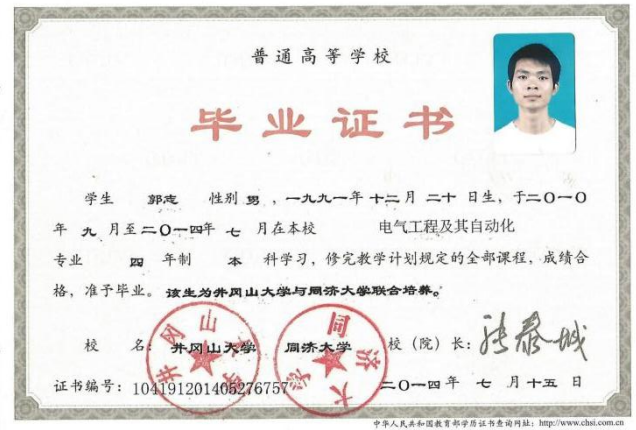 普通高等学校
毕业证书
学生 郭志 性别 男 ，一九九一年 十二月 二十 日生，于二〇一〇
年 九 月至二〇一四年 七 月在本校 电气工程及其自动化
专业 四 年制 本 科学习，修完教学计划规定的全部课程，成绩合
格，准予毕业。该生为井冈山大学与同济大学联合培养。
校 名：井冈山大学 同济大学 校（院）长：张泰城
证书编号：104191201405276757 二〇一四年 七 月十五 日
井冈山大学
同济大学
中华人民共和国教育部学历证书查询网址：http://www.chsi.com.cn